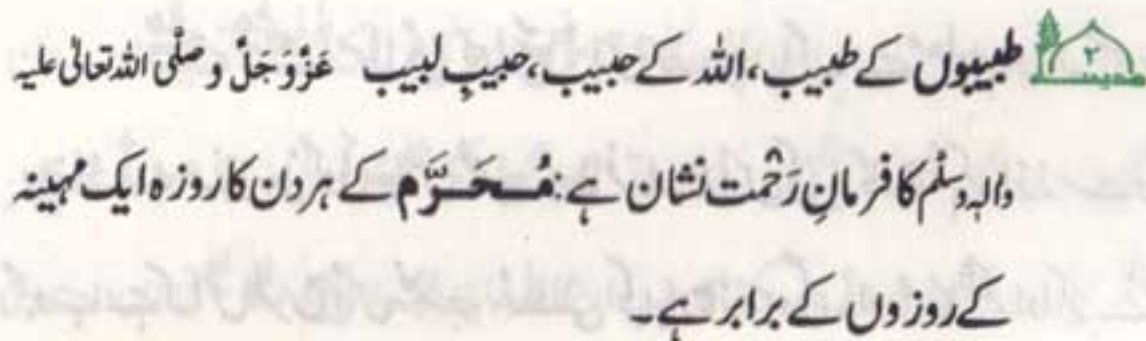 ۲ طبیبوں کے طبیب، اللہ کے حبیب، حبیبِ لبیب عَزَّوَجَلَّ و صلَّی اللہ تعالٰی علیہ
واٰلہٖ وسلَّم کا فرمانِ رَحْمت نشان ہے: مُحَرَّم کے ہر دن کا روزہ ایک مہینہ
کے روزوں کے برابر ہے۔